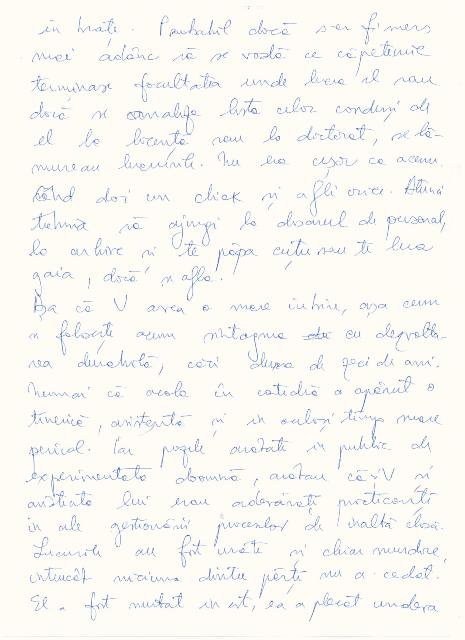 în brațe. Probabil dacă s-ar fi mers
mai adânc să se vadă ce căpetenie
terminase facultatea unde lucra el sau
dacă se analiza lista celor conduși de
el la licență sau la doctorat, se lă-
mureau lucrurile. Nu era ușor ca acum.
Când dai un click și afli orice. Atunci
trebuia să ajungi la dosarul de personal,
la arhive și te păpa cuțu sau te lua
gaia, dacă n aflai.
Așa că V avea o mare iubire, așa cum
se folosește acum sintagma cu dezvolta-
rea durabilă, căci dura de zeci de ani.
Numai că acolo în catedră a apărut o
tinerică, asistentă și în același timp mare
pericol. Iar pozele arătate în public de
experimentata doamnă, arătau că și V și
asistenta lui erau adevărați practicanți
în ale gestionării proceselor de înaltă clasă.
Lucrurile au fost urâte și chiar murdare,
întrucât niciuna dintre părți nu a cedat.
El a fost mutat in est, ea a plecat undeva